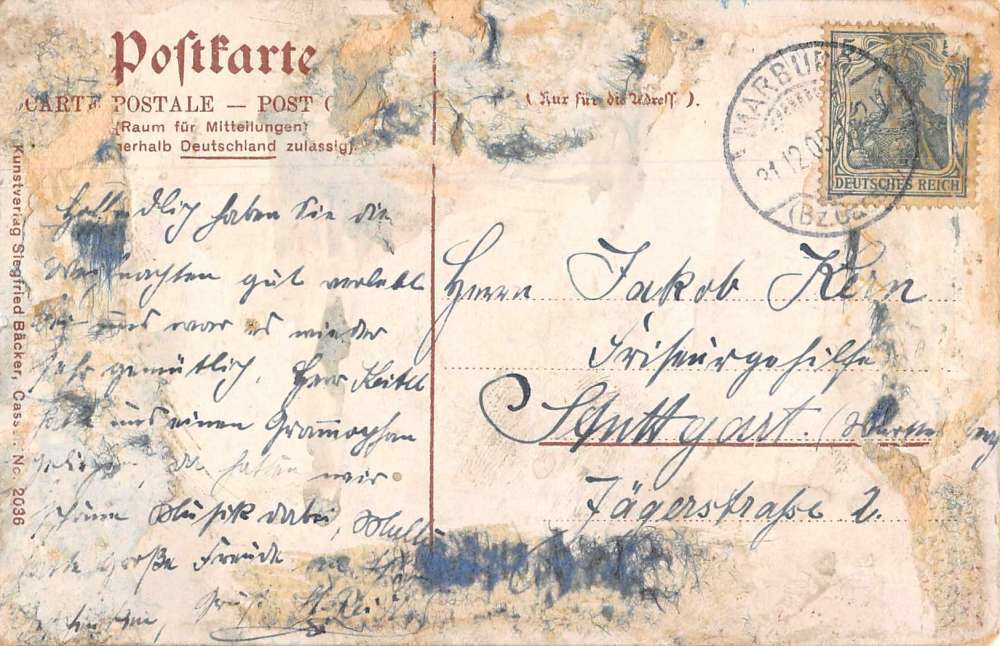 Postkarte
CARTE POSTALE — POST
(Raum für Mitteilungen
nerhalb Deutschland zulässig).
(Nur für die Adresse).
MARBURG
31.12.05
(Bz. Ca
5
DEUTSCHES REICH
Kunstverlag Siegfried Bäcker, Cass No. 2036
Hoffendlich haben Sie die
Weihnachten gut verlebt
Bei uns war es wieder
sehr gemütlich, Herr Keitel
uns einen Grammophon
da hatten wir
schöne Musik dabei,
große Freude
Herrn Jakob Kern
Friseurgehilfe
Stuttgart.
Jägerstraße 2.